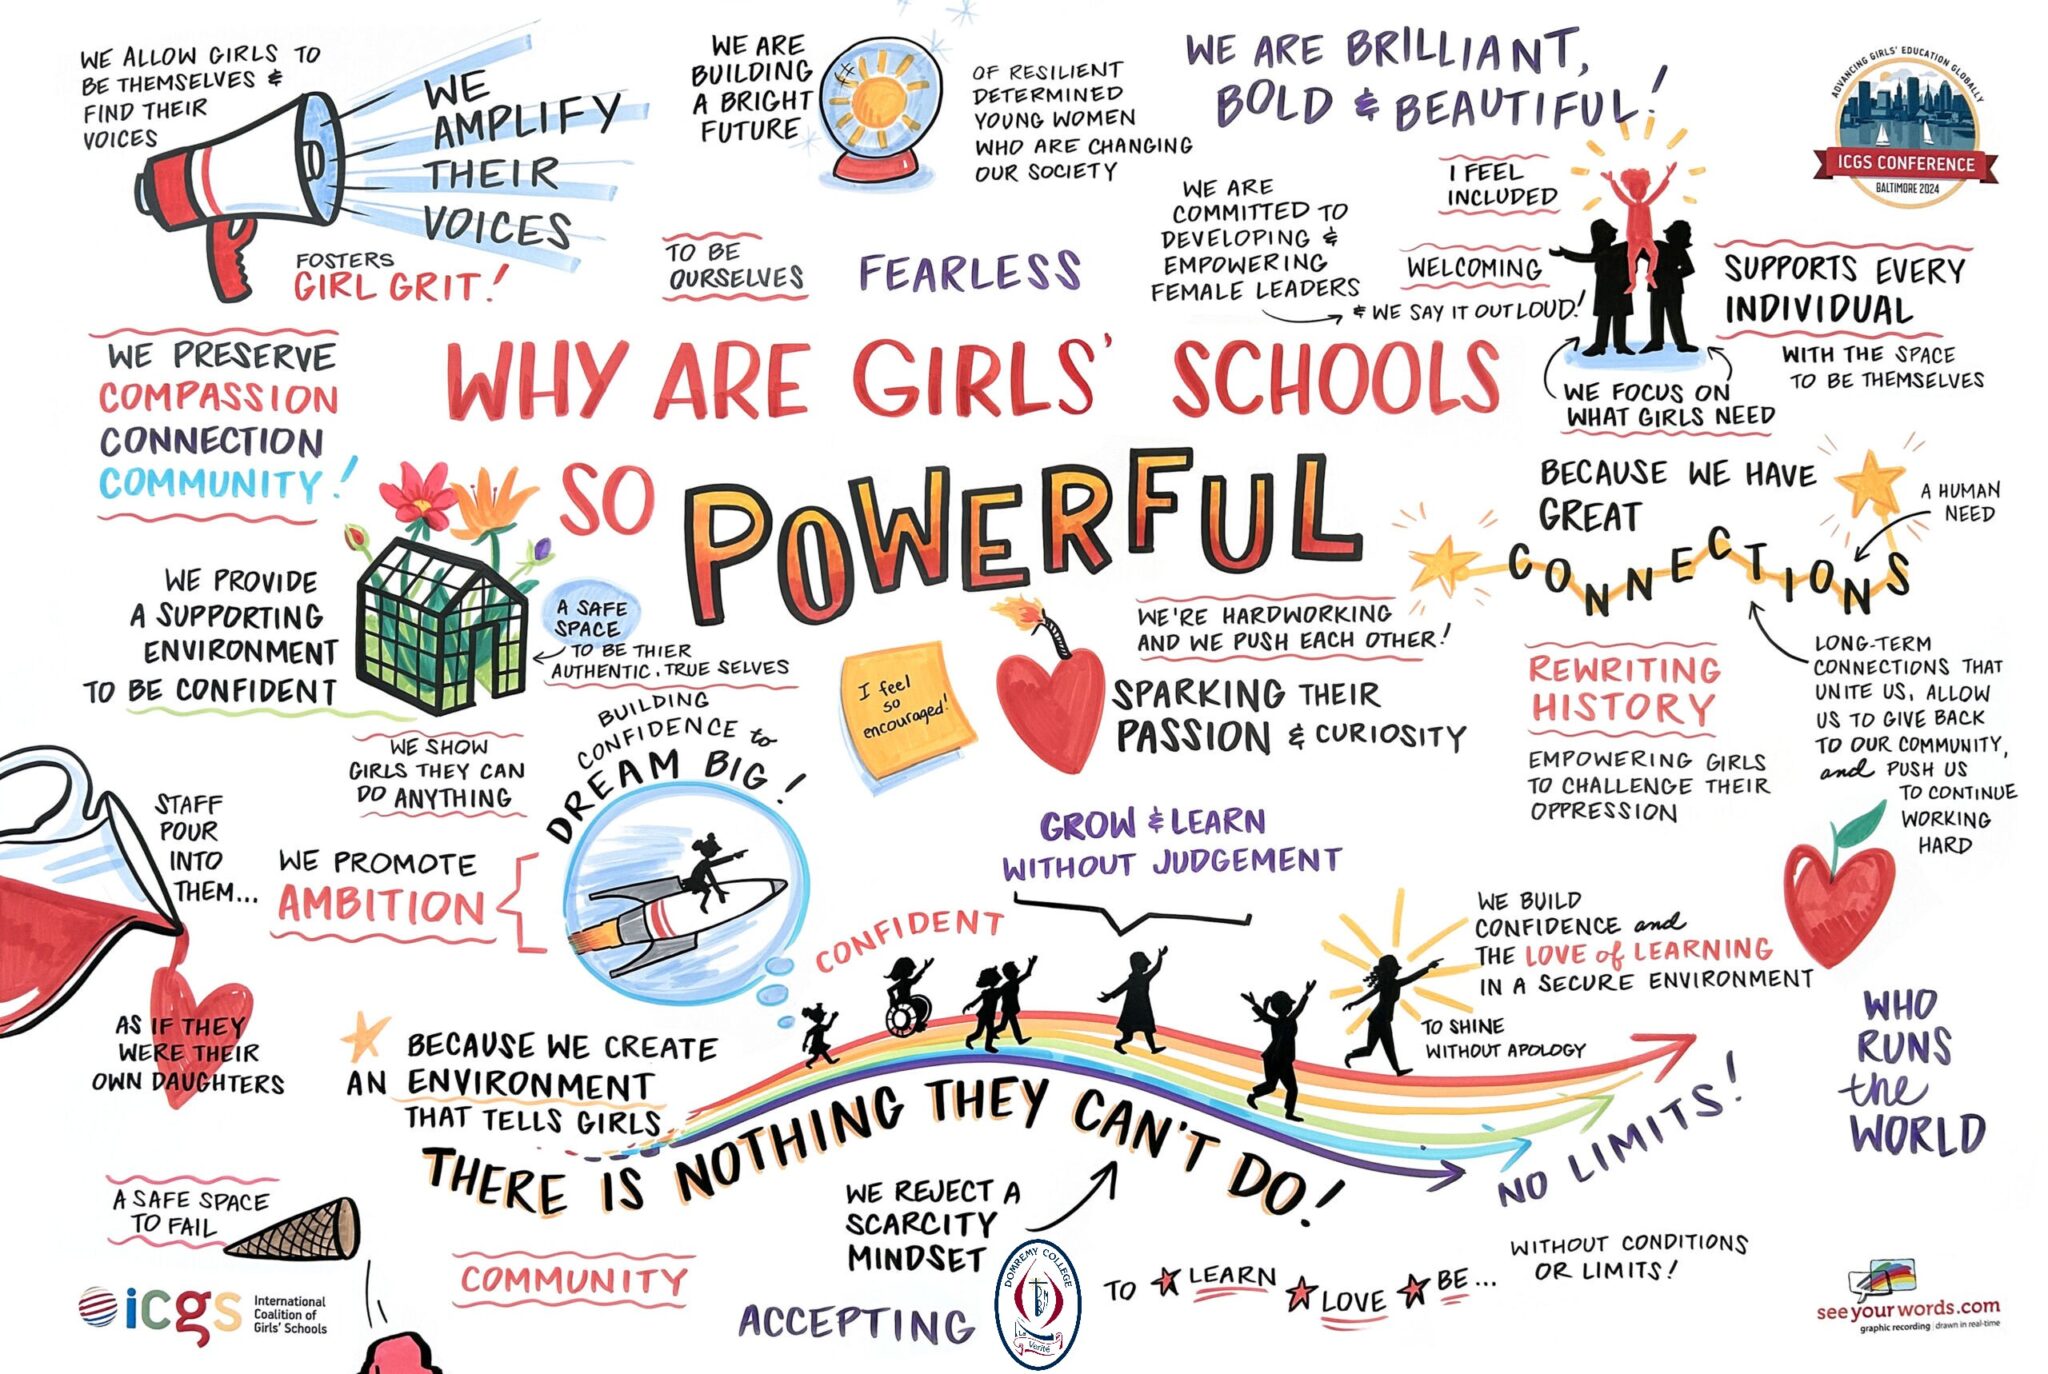 WE ALLOW GIRLS TO
BE THEMSELVES &
FIND THEIR
VOICES
WE
AMPLIFY
THEIR
VOICES
FOSTERS
GIRL GRIT!
WE ARE
BUILDING
A BRIGHT
FUTURE
OF RESILIENT
DETERMINED
YOUNG WOMEN
WHO ARE CHANGING
OUR SOCIETY
WE ARE BRILLIANT,
BOLD & BEAUTIFUL!
ADVANCING GIRLS' EDUCATION GLOBALLY
ICGS CONFERENCE
BALTIMORE 2024
TO BE
OURSELVES
FEARLESS
WE ARE
COMMITTED TO
DEVELOPING &
EMPOWERING
FEMALE LEADERS
& WE SAY IT OUT LOUD!
I FEEL
INCLUDED
WELCOMING
SUPPORTS EVERY
INDIVIDUAL
WITH THE SPACE
TO BE THEMSELVES
WE FOCUS ON
WHAT GIRLS NEED
WHY ARE GIRLS' SCHOOLS
SO POWERFUL
WE PRESERVE
COMPASSION
CONNECTION
COMMUNITY!
WE PROVIDE
A SUPPORTING
ENVIRONMENT
TO BE CONFIDENT
A SAFE
SPACE
TO BE THIER
AUTHENTIC, TRUE SELVES
WE SHOW
GIRLS THEY CAN
DO ANYTHING
BUILDING
CONFIDENCE to
DREAM BIG!
I feel
so
encouraged!
WE'RE HARDWORKING
AND WE PUSH EACH OTHER!
SPARKING THEIR
PASSION & CURIOSITY
BECAUSE WE HAVE
GREAT
CONNECTIONS
A HUMAN
NEED
LONG-TERM
CONNECTIONS THAT
UNITE US, ALLOW
US TO GIVE BACK
TO OUR COMMUNITY,
and PUSH US
TO CONTINUE
WORKING
HARD
REWRITING
HISTORY
EMPOWERING GIRLS
TO CHALLENGE THEIR
OPPRESSION
STAFF
POUR
INTO
THEM...
AS IF THEY
WERE THEIR
OWN DAUGHTERS
WE PROMOTE
AMBITION
GROW & LEARN
WITHOUT JUDGEMENT
CONFIDENT
WE BUILD
CONFIDENCE and
THE LOVE of LEARNING
IN A SECURE ENVIRONMENT
TO SHINE
WITHOUT APOLOGY
WHO
RUNS
the
WORLD
BECAUSE WE CREATE
AN ENVIRONMENT
THAT TELLS GIRLS
THERE IS NOTHING THEY CAN'T DO!
NO LIMITS!
A SAFE SPACE
TO FAIL
WE REJECT A
SCARCITY
MINDSET
COMMUNITY
ACCEPTING
TO LEARN LOVE BE...
WITHOUT CONDITIONS
OR LIMITS!
icgs
International
Coalition of
Girls' Schools
DOMREMY COLLEGE
La Verité
seeyourwords.com
graphic recording | drawn in real-time